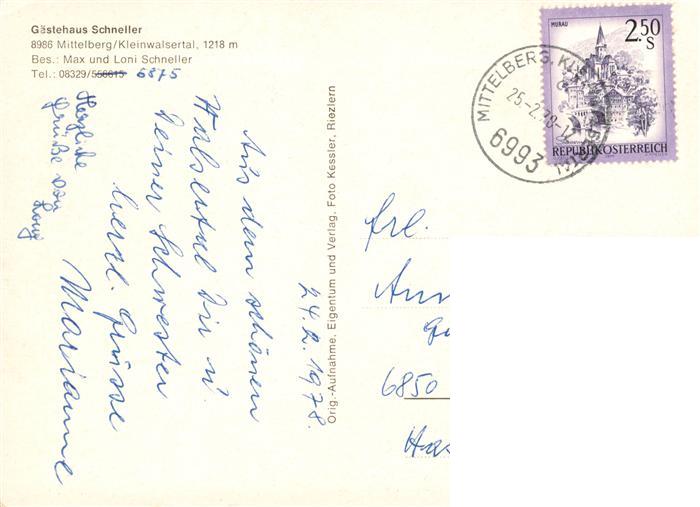 Gästehaus Schneller
8986 Mittelberg/Kleinwalsertal, 1218 m
Bes.: Max und Loni Schneller
Tel.: 08329/556615 6875
Herzliche
Grüße von
24.2.1978.
Aus dem schönen
Walsertal Dir u.
Deiner Schwester
herzl. Grüsse
Marianne
Orig.-Aufnahme, Eigentum und Verlag. Foto Kessler, Riezlern
MURAU
2.50
S
REPUBLIK ÖSTERREICH
MITTELBERG, KL
25-2.78-17
6993
Frl.
6850